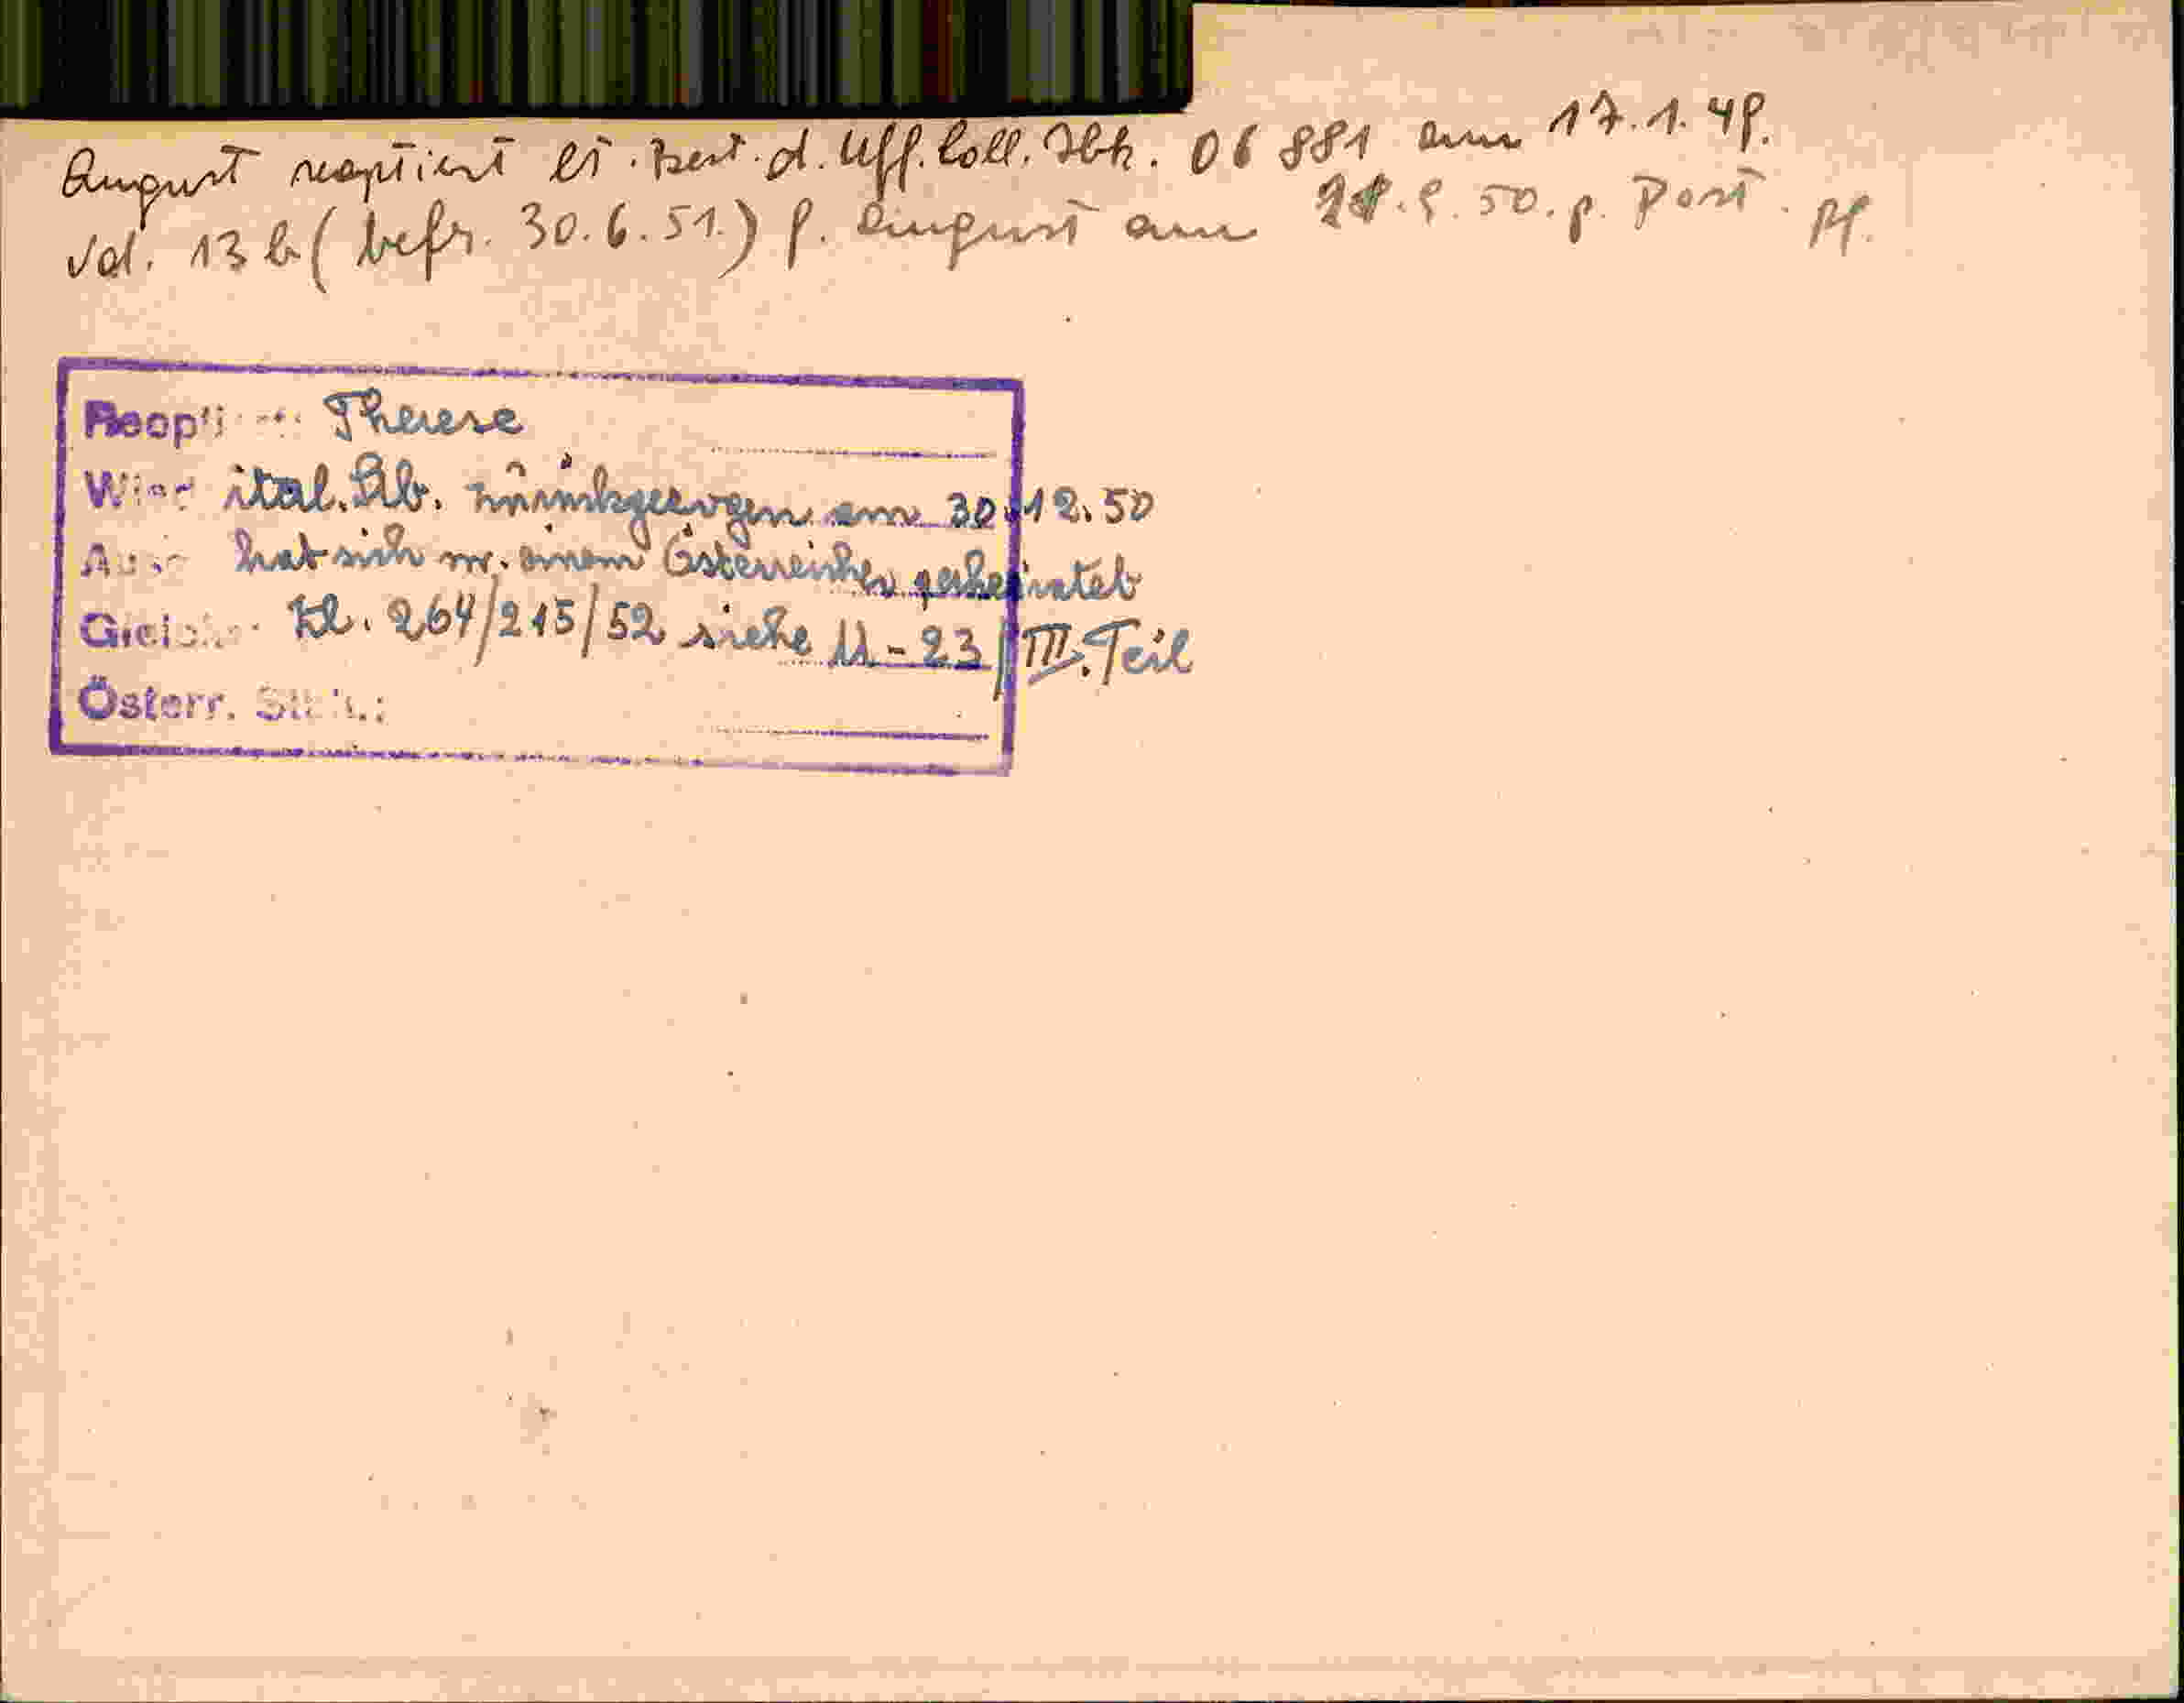 August reoptiert lt. Best. d. Uff. Coll. Ibk. 06 881 am 17.1.49.
Vol. 13 b ( befr. 30.6.51.) f. August am 28.9.50. p. Post. pf.
Reopti Therese
Wied ital. Stb. zurückgezogen am 30.12.50
hat sich m. einem Österreicher geheiratet
Zl. 264/215/52 siehe 11-23/III. Teil
Österr. Stb.: